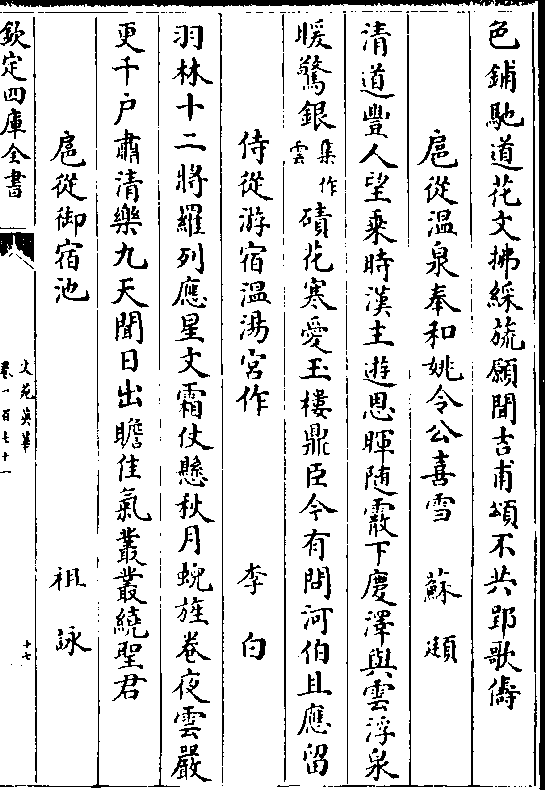 色鋪馳道花文拂綵旒願聞吉甫頌不共郢歌儔
扈從温泉奉和姚令公喜雪 蘇頲
清道豐人望乘時漢主遊恩暉随霰下慶澤與雲浮泉
暖驚銀集作雲磧花寒愛玉樓鼎臣今有問河伯且應留
侍從游宿温湯宫作 李白
羽林十二將羅列應星文霜仗懸秋月蜺旌卷夜雲嚴
更千户肅清樂九天聞日出瞻佳氣叢叢繞聖君
扈從御宿池 祖詠
欽定四庫全書
文苑英華
卷一百七十一
十七